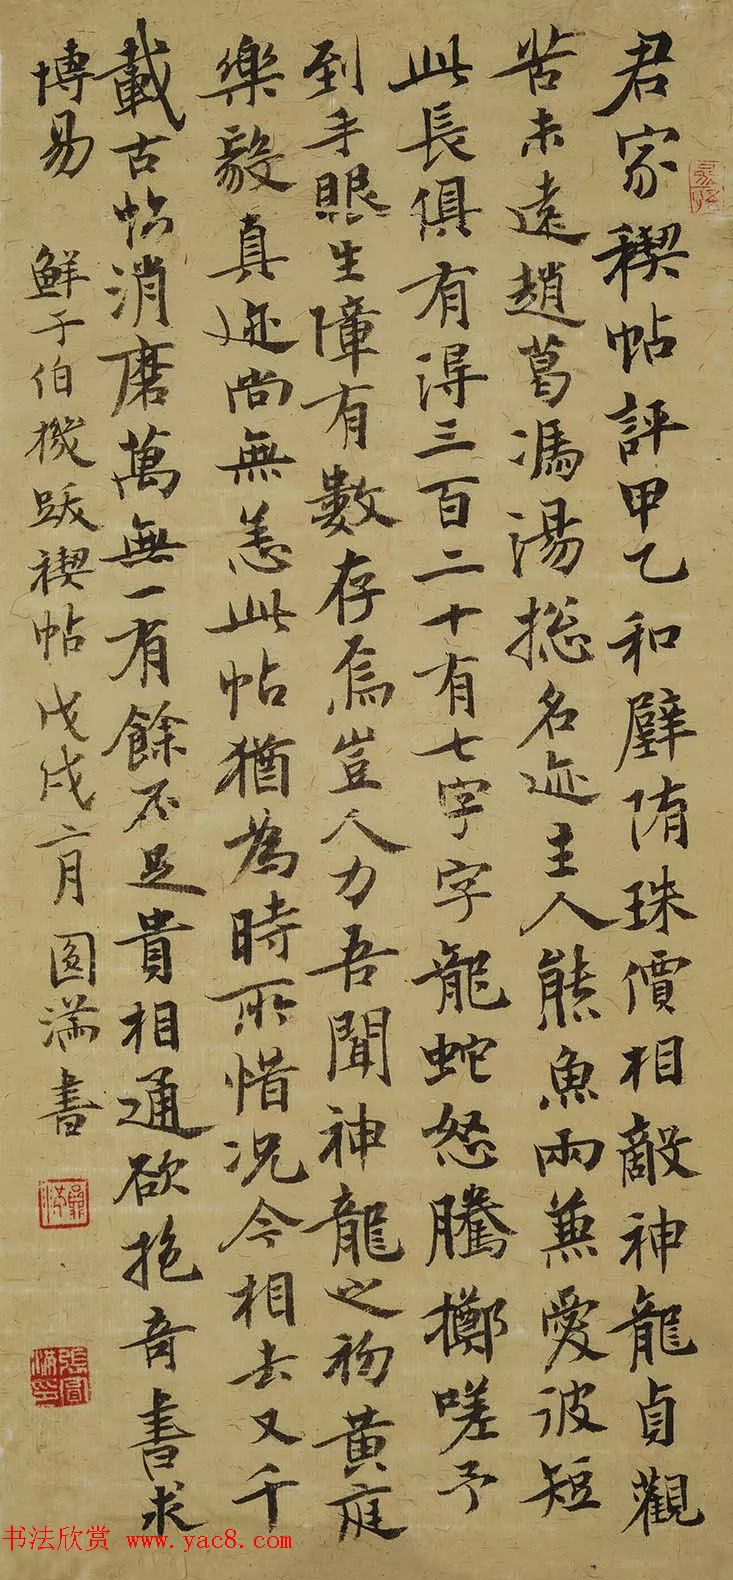 君家禊帖評甲乙和璧隋珠價相敵神龍貞觀
苦未遠趙葛馮湯搃名迹主人熊魚兩兼愛彼短
此長俱有得三百二十有七字字龍蛇怒騰擲嗟予
到手眼生障有數存焉豈人力吾聞神龍之初黃庭
樂毅真迹尚無恙此帖猶為時所惜況今相去又千
載古帖消磨萬無一有餘不足貴相通欲抱奇書求
博易 鮮于伯機跋禊帖戊戌六月圓滿書
书法欣赏 www.yac8.com